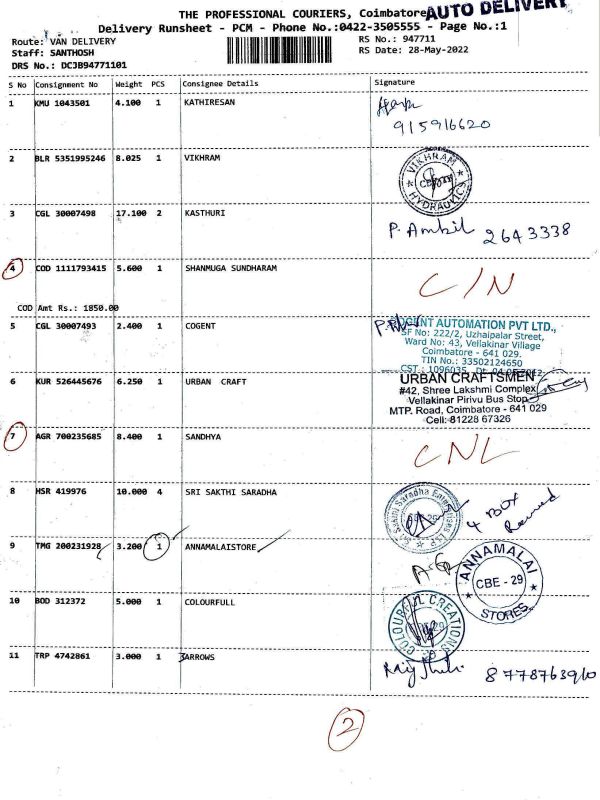 THE PROFESSIONAL COURIERS, Coimbatore AUTO DELIVERY
Delivery Runsheet - PCM - Phone No.:0422-3505555 - Page No.:1
Route: VAN DELIVERY RS No.: 947711
Staff: SANTHOSH RS Date: 28-May-2022
DRS No.: DCJB94771101
S No Consignment No Weight PCS Consignee Details Signature
1 KMU 1043501 4.100 1 KATHIRESAN
915916620
2 BLR 5351995246 8.025 1 VIKHRAM
VIKHRAM HYDRAULICS
3 CGL 30007498 17.100 2 KASTHURI
P. Ambil 2643338
4 COD 1111793415 5.600 1 SHANMUGA SUNDHARAM
C/N
COD Amt Rs.: 1850.00
5 CGL 30007493 2.400 1 COGENT
COGENT AUTOMATION PVT LTD.,
SF No: 222/2, Uzhaipalar Street,
Ward No: 43, Vellakinar Village
Coimbatore - 641 029.
TIN No.: 33502124650
CST.: 1096035
6 KUR 526445676 6.250 1 URBAN CRAFT
URBAN CRAFTSMEN
#42, Shree Lakshmi Complex
Vellakinar Pirivu Bus Stop
MTP. Road, Coimbatore - 641 029
Cell: 81228 67326
7 AGR 700235685 8.400 1 SANDHYA
CNL
8 HSR 419976 10.000 4 SRI SAKTHI SARADHA
Sri Sakthi Saradha Enterprises LLP
4 BOX
Received
9 TMG 200231928 3.200 1 ANNAMALAISTORE
ANNAMALAI STORES
CBE - 29
10 BOD 312372 5.000 1 COLOURFULL
COLOURFUL CREATIONS
11 TRP 4742861 3.000 1 3ARROWS
8778763910
2